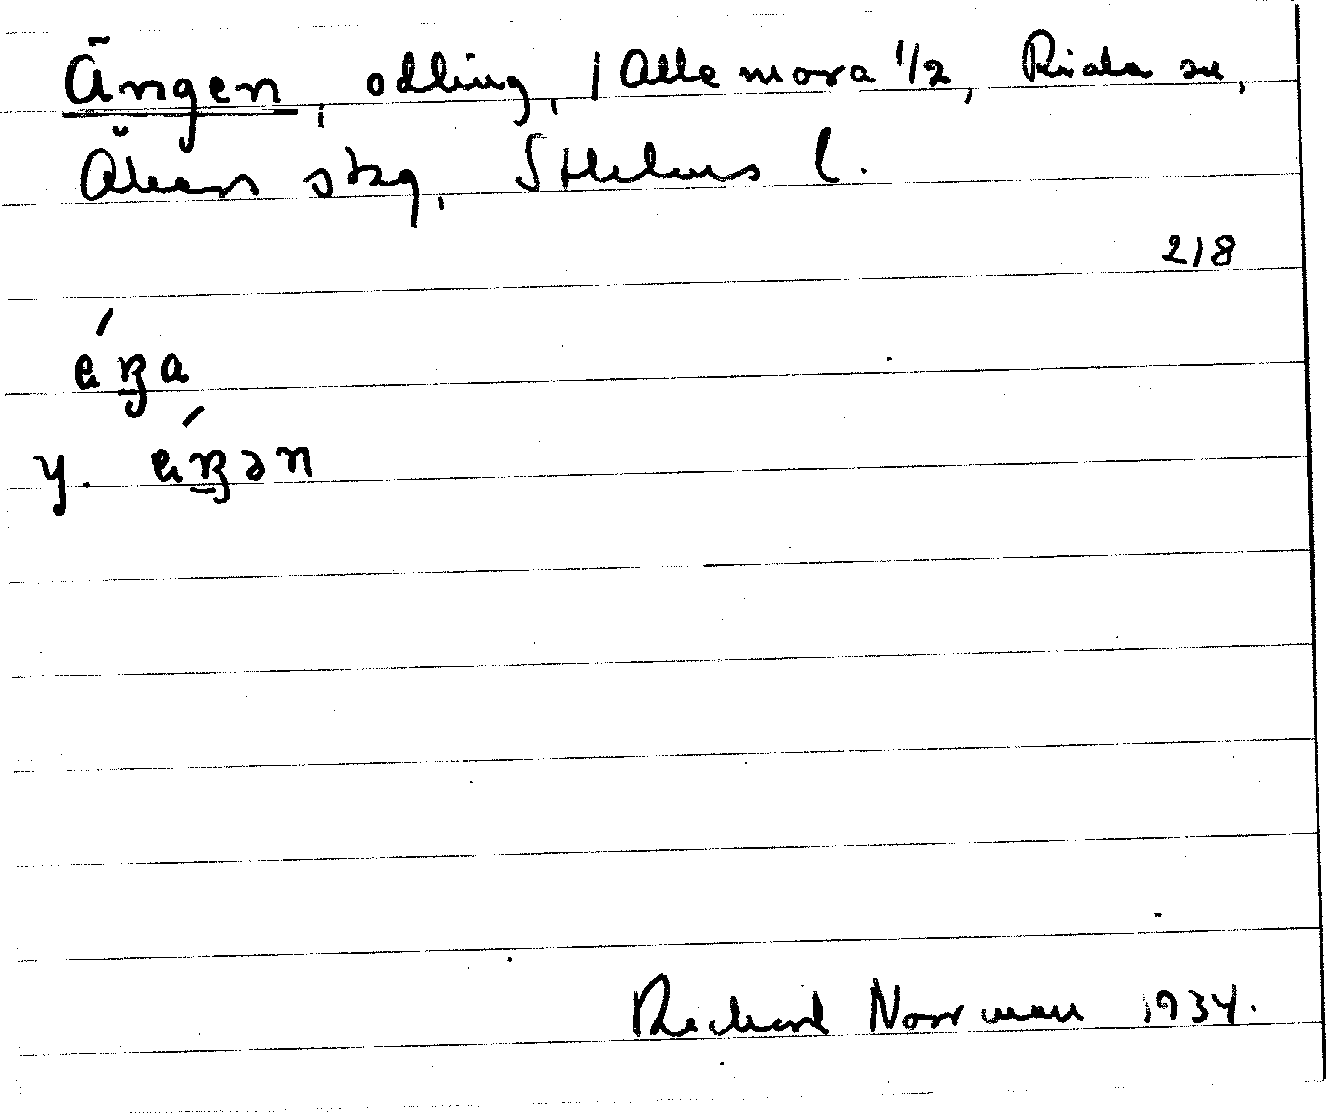 Ängen, odling, 1 Allemora 1/2, Riala sn,
Åkers skg, Sthlms l.
218
éŋa
y. éŋən
Richard Norrman 1934.